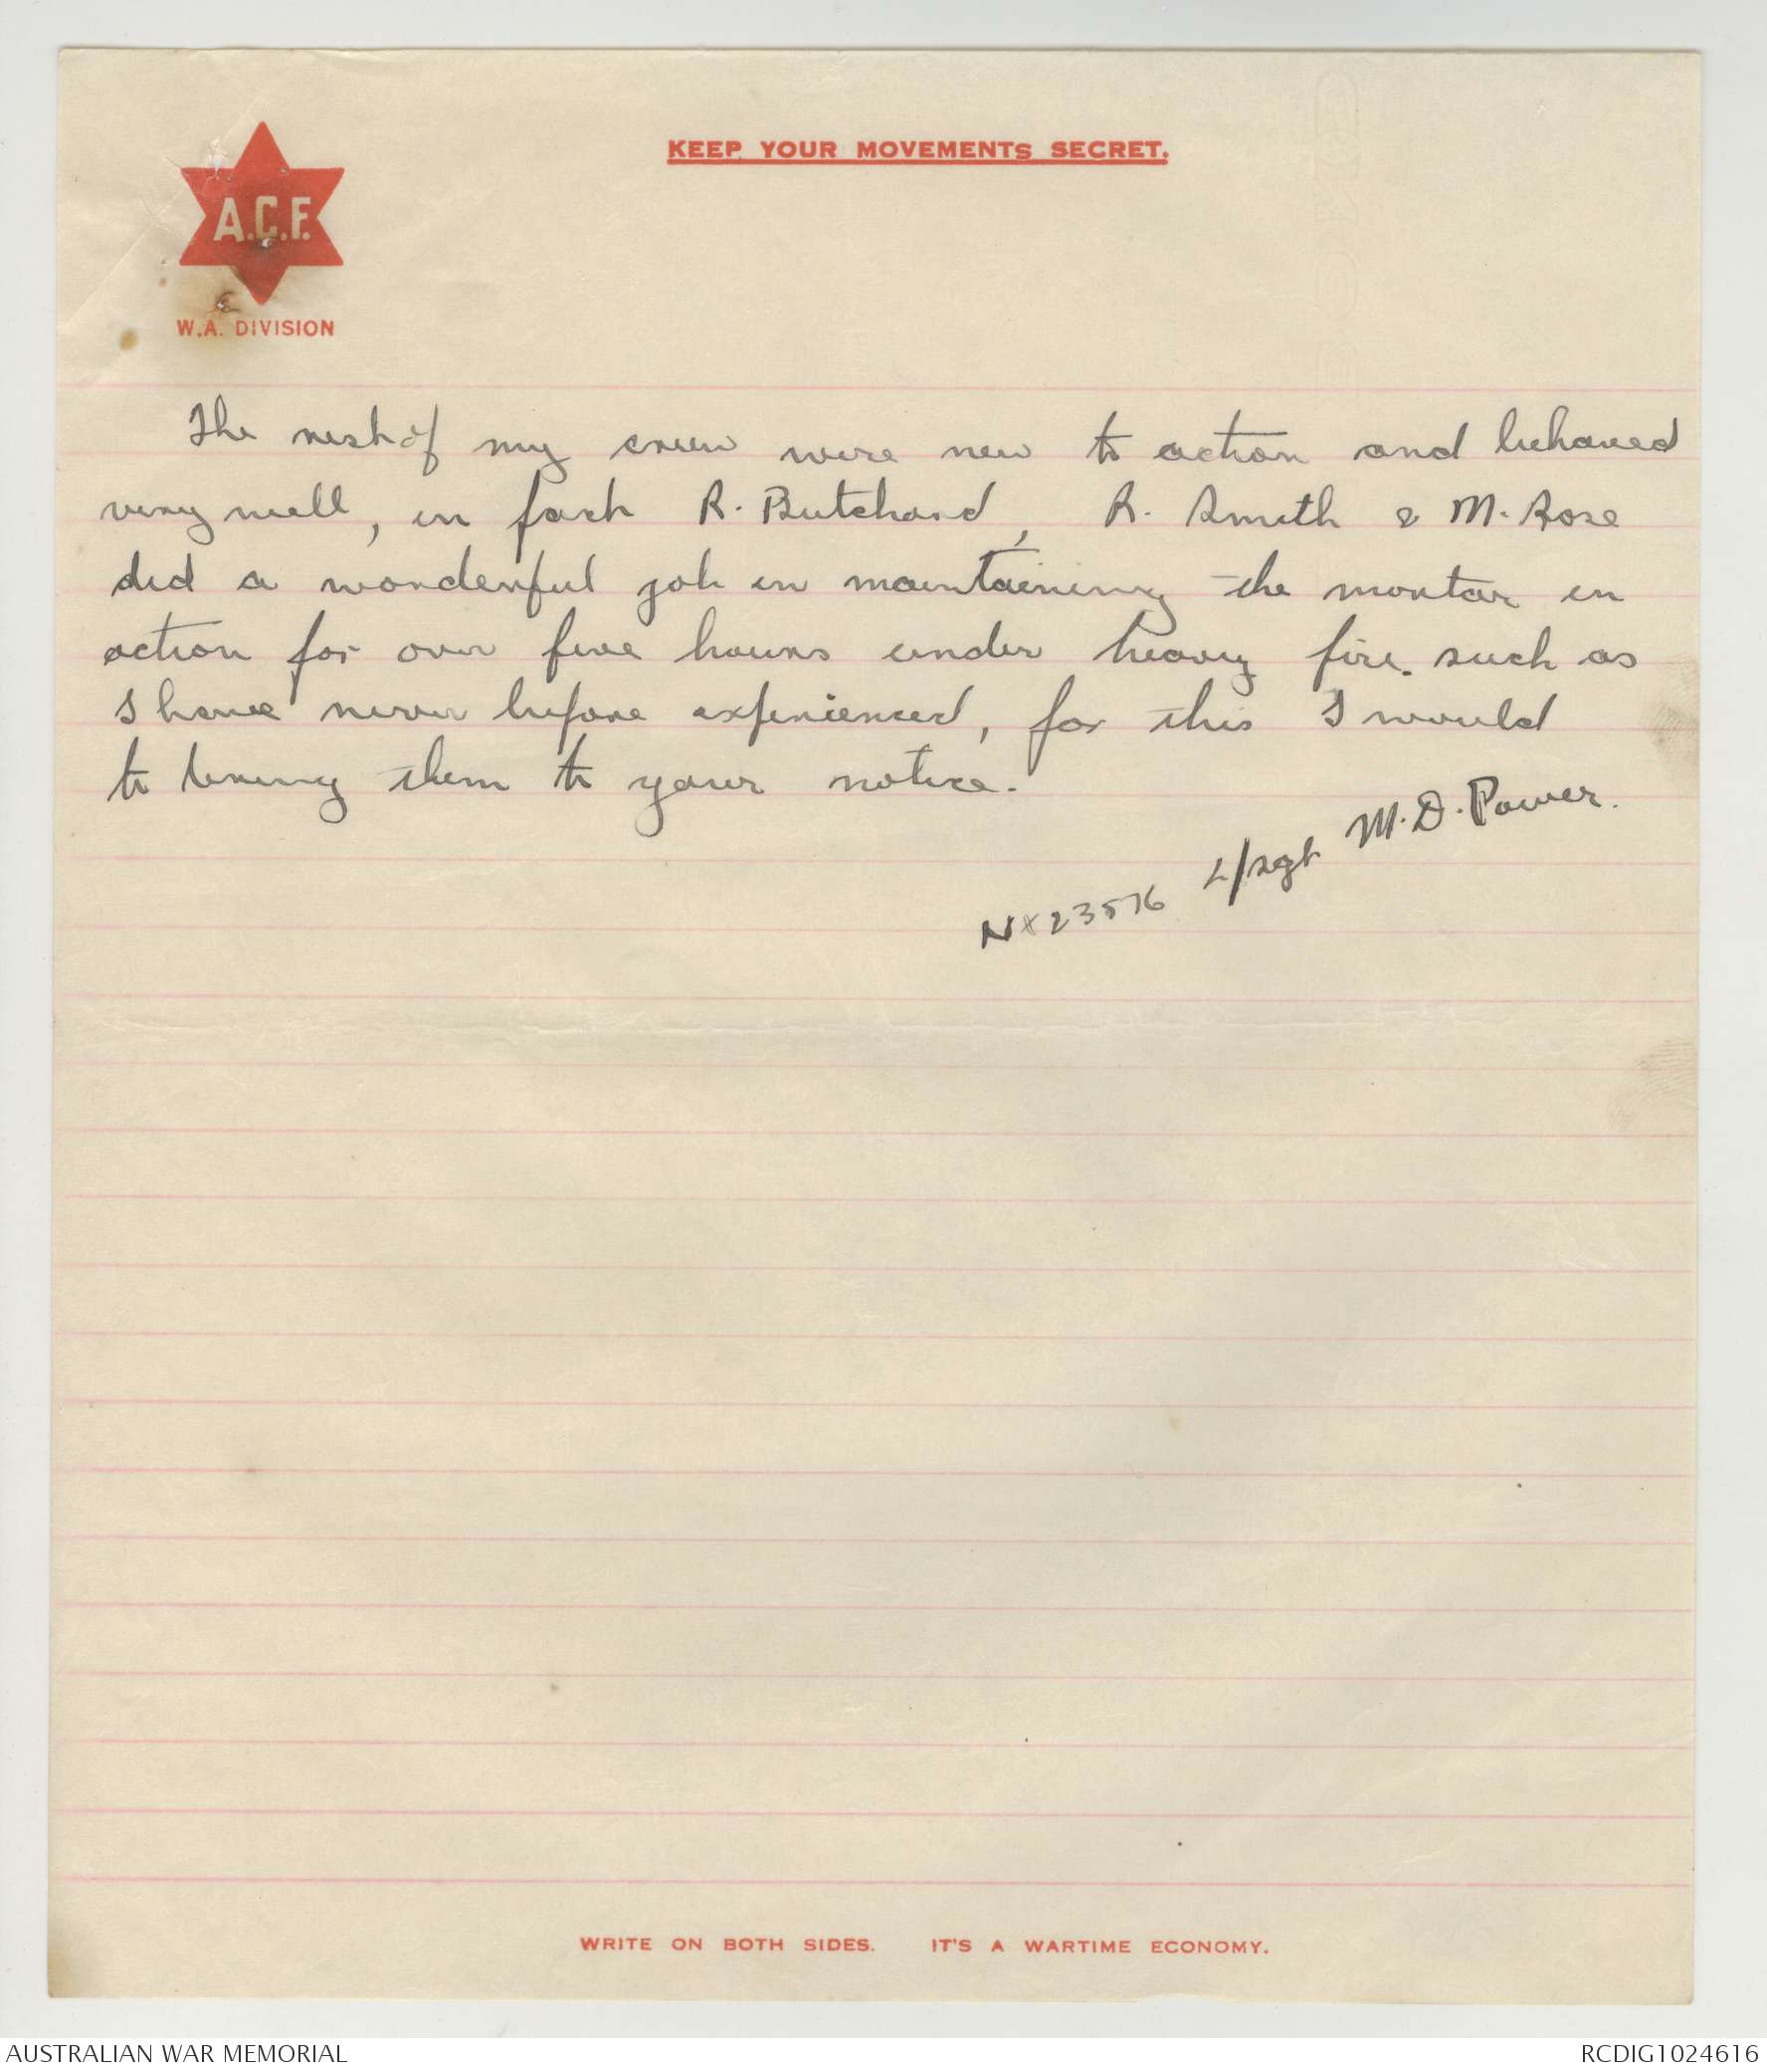 KEEP YOUR MOVEMENTS SECRET.
A.C.F.
W.A. DIVISION
The rest of my crew were new to action and behaved
very well, in fact R. Butchard, R. Smith & M. Rose
did a wonderful job in maintaining the mortar in
action for over five hours under heavy fire. such as
I have never before experienced, for this I would
to bring them to your notice.
NX23576 L/Sgt M.D. Power.
WRITE ON BOTH SIDES. IT'S A WARTIME ECONOMY.
AUSTRALIAN WAR MEMORIAL
RCDIG1024616